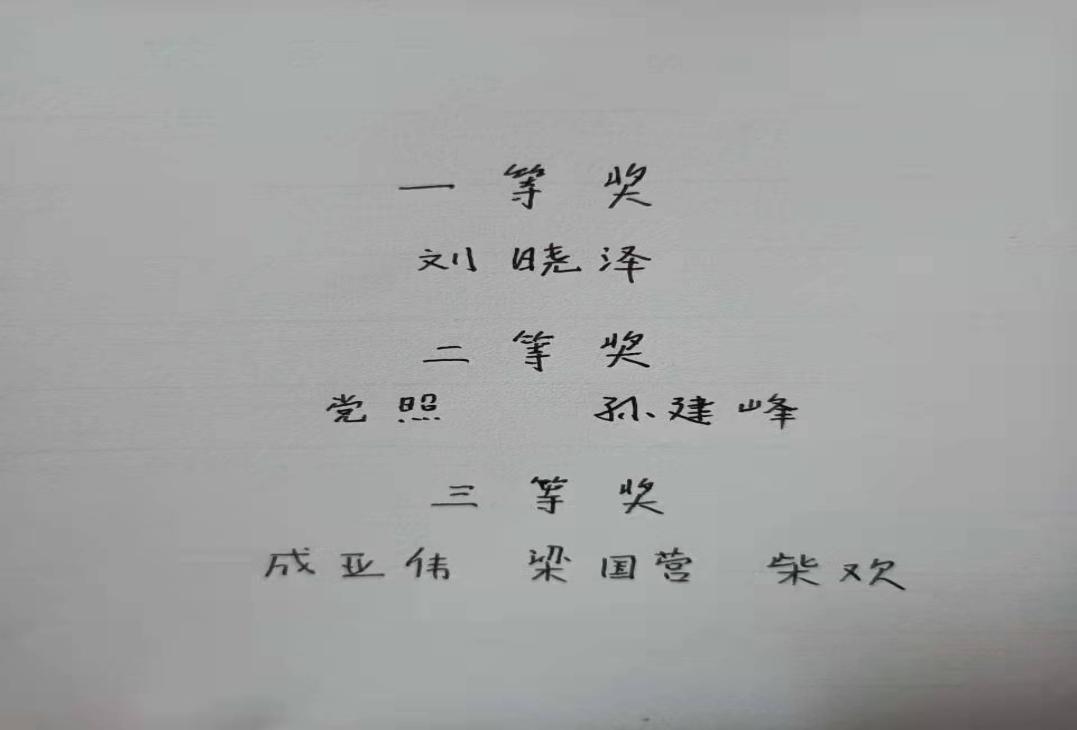 一等奖
刘晓泽
二等奖
党照 孙建峰
三等奖
成亚伟 梁国营 柴欢